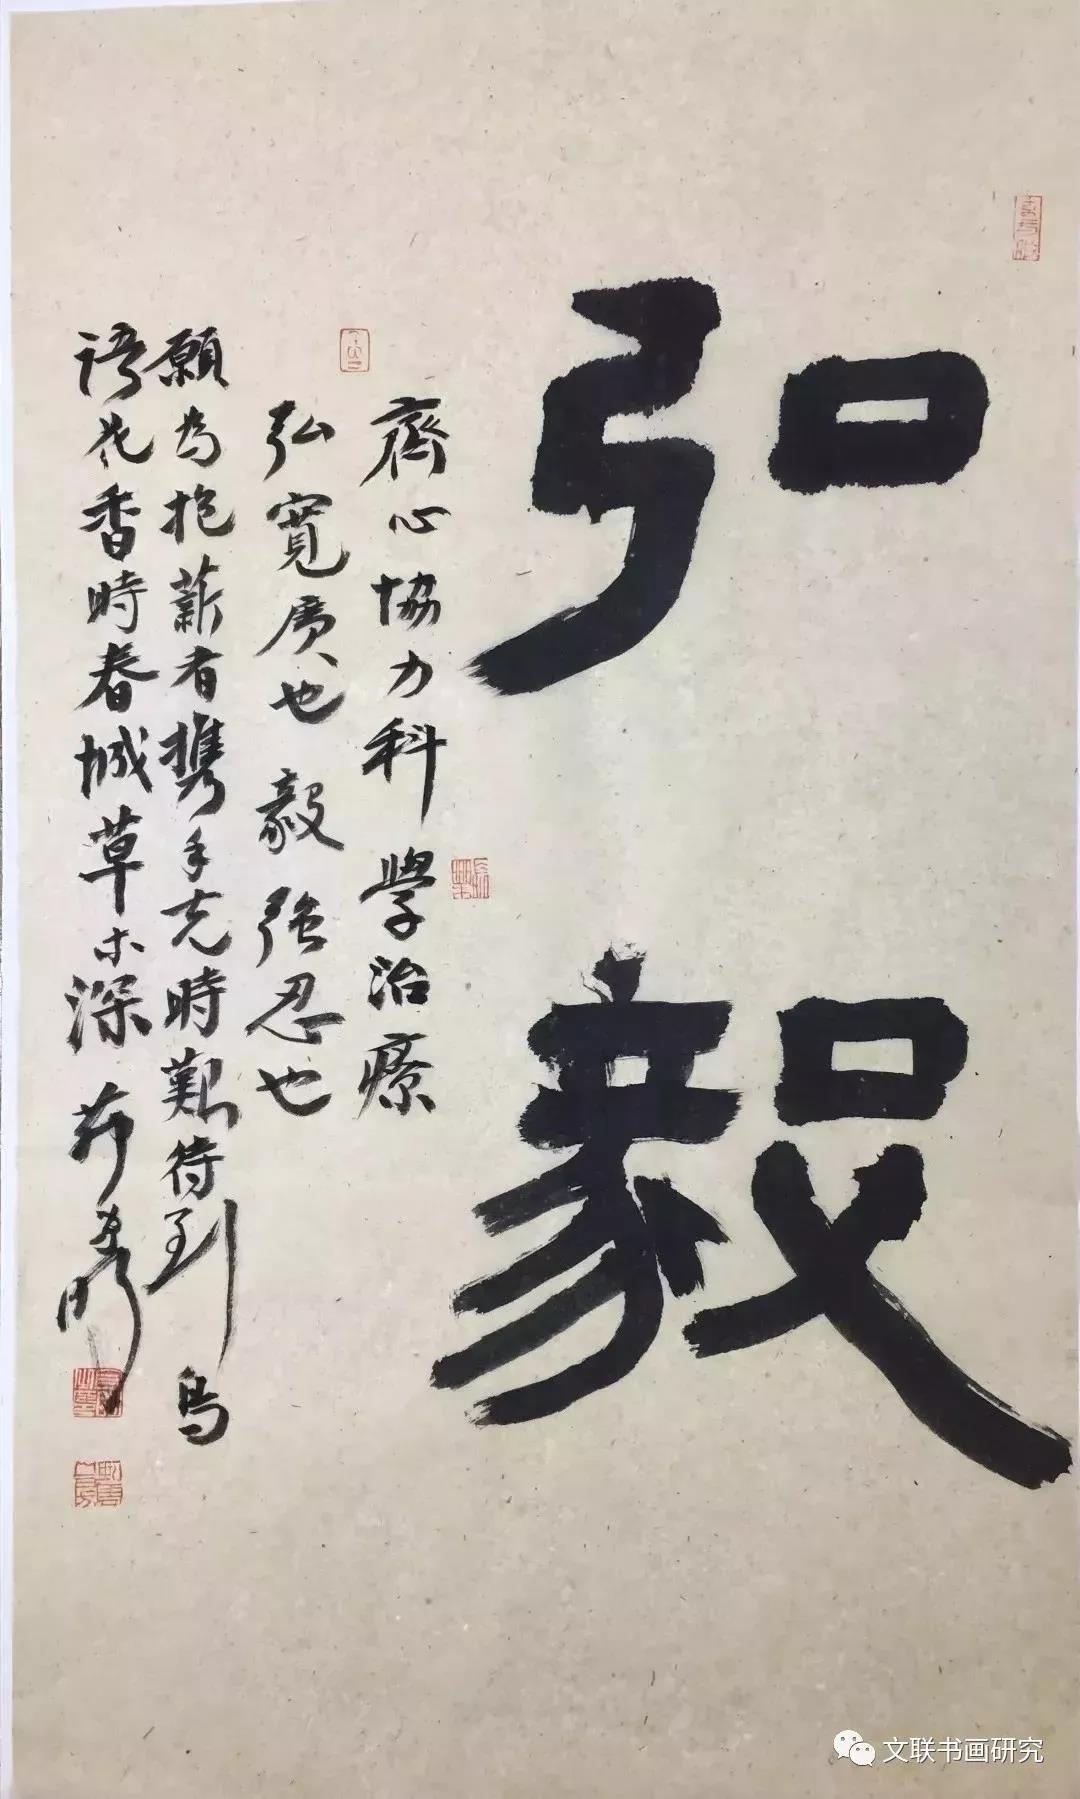 弘毅
齊心協力科學治療
弘寬廣也毅強忍也
願為抱薪者攜手克時艱待到鳥
語花香時春城草木深
文联书画研究